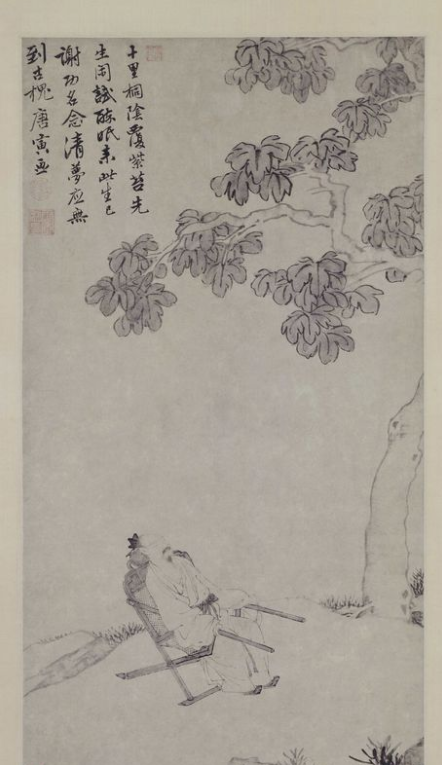 十里桐陰覆紫苔先
生閑試醉眠來此生已
謝功名念清夢應無
到古槐唐寅畫